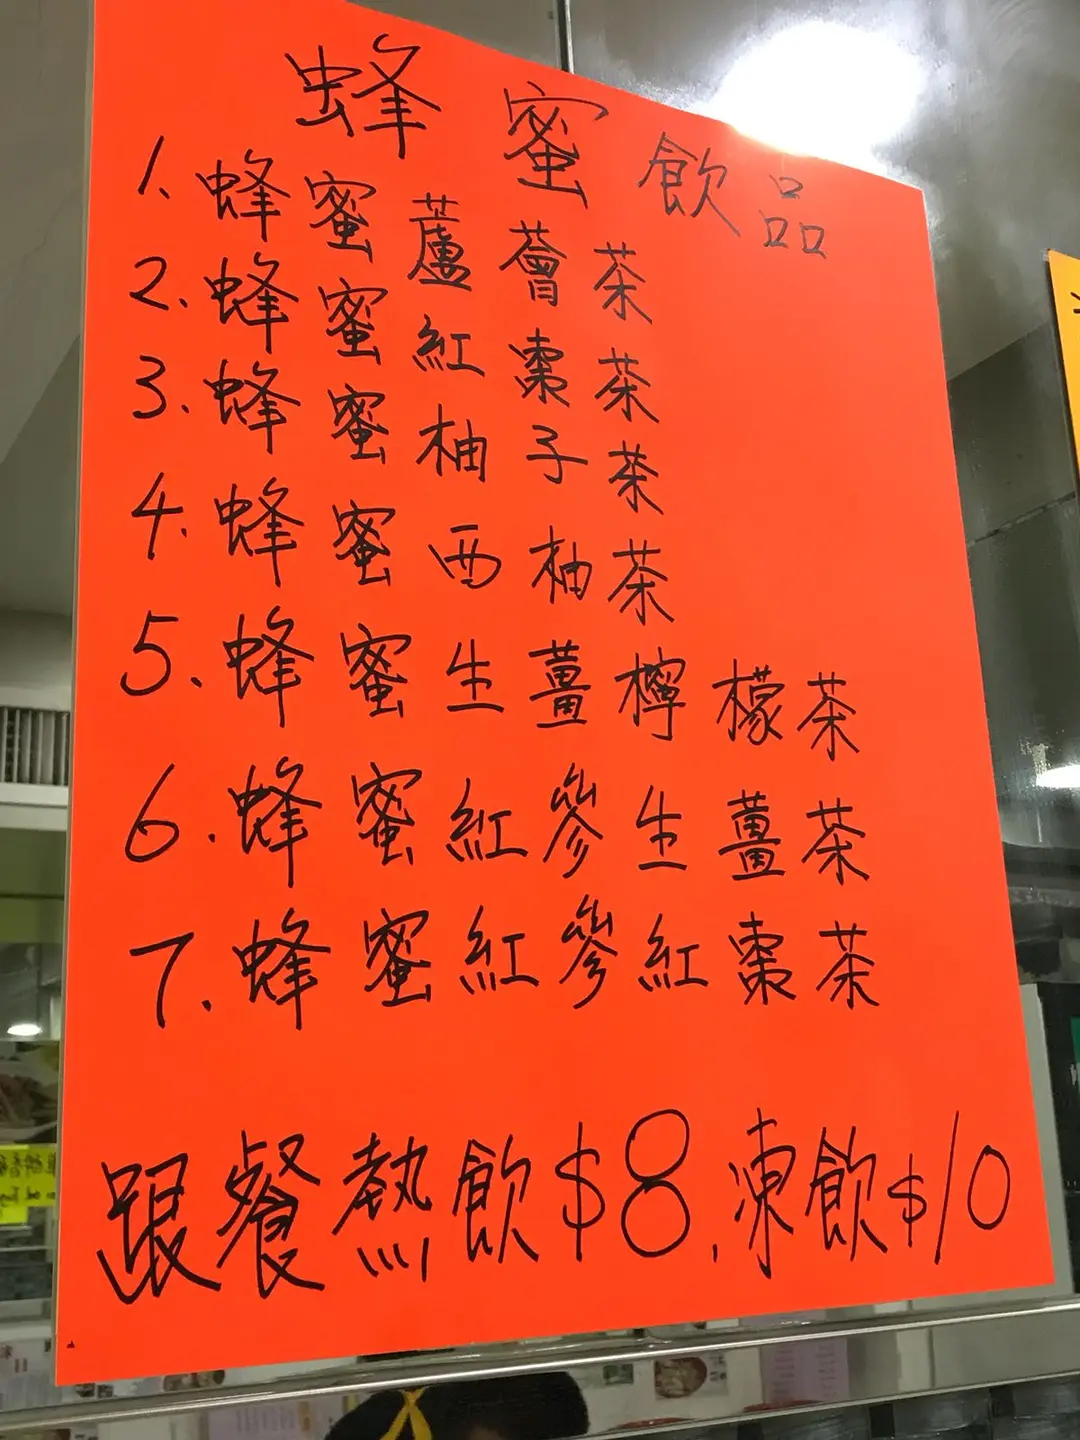 蜂蜜飲品
1. 蜂蜜蘆薈茶
2. 蜂蜜紅棗茶
3. 蜂蜜柚子茶
4. 蜂蜜西柚茶
5. 蜂蜜生薑檸檬茶
6. 蜂蜜紅參生薑茶
7. 蜂蜜紅參紅棗茶
跟餐熱飲$8,凍飲$10